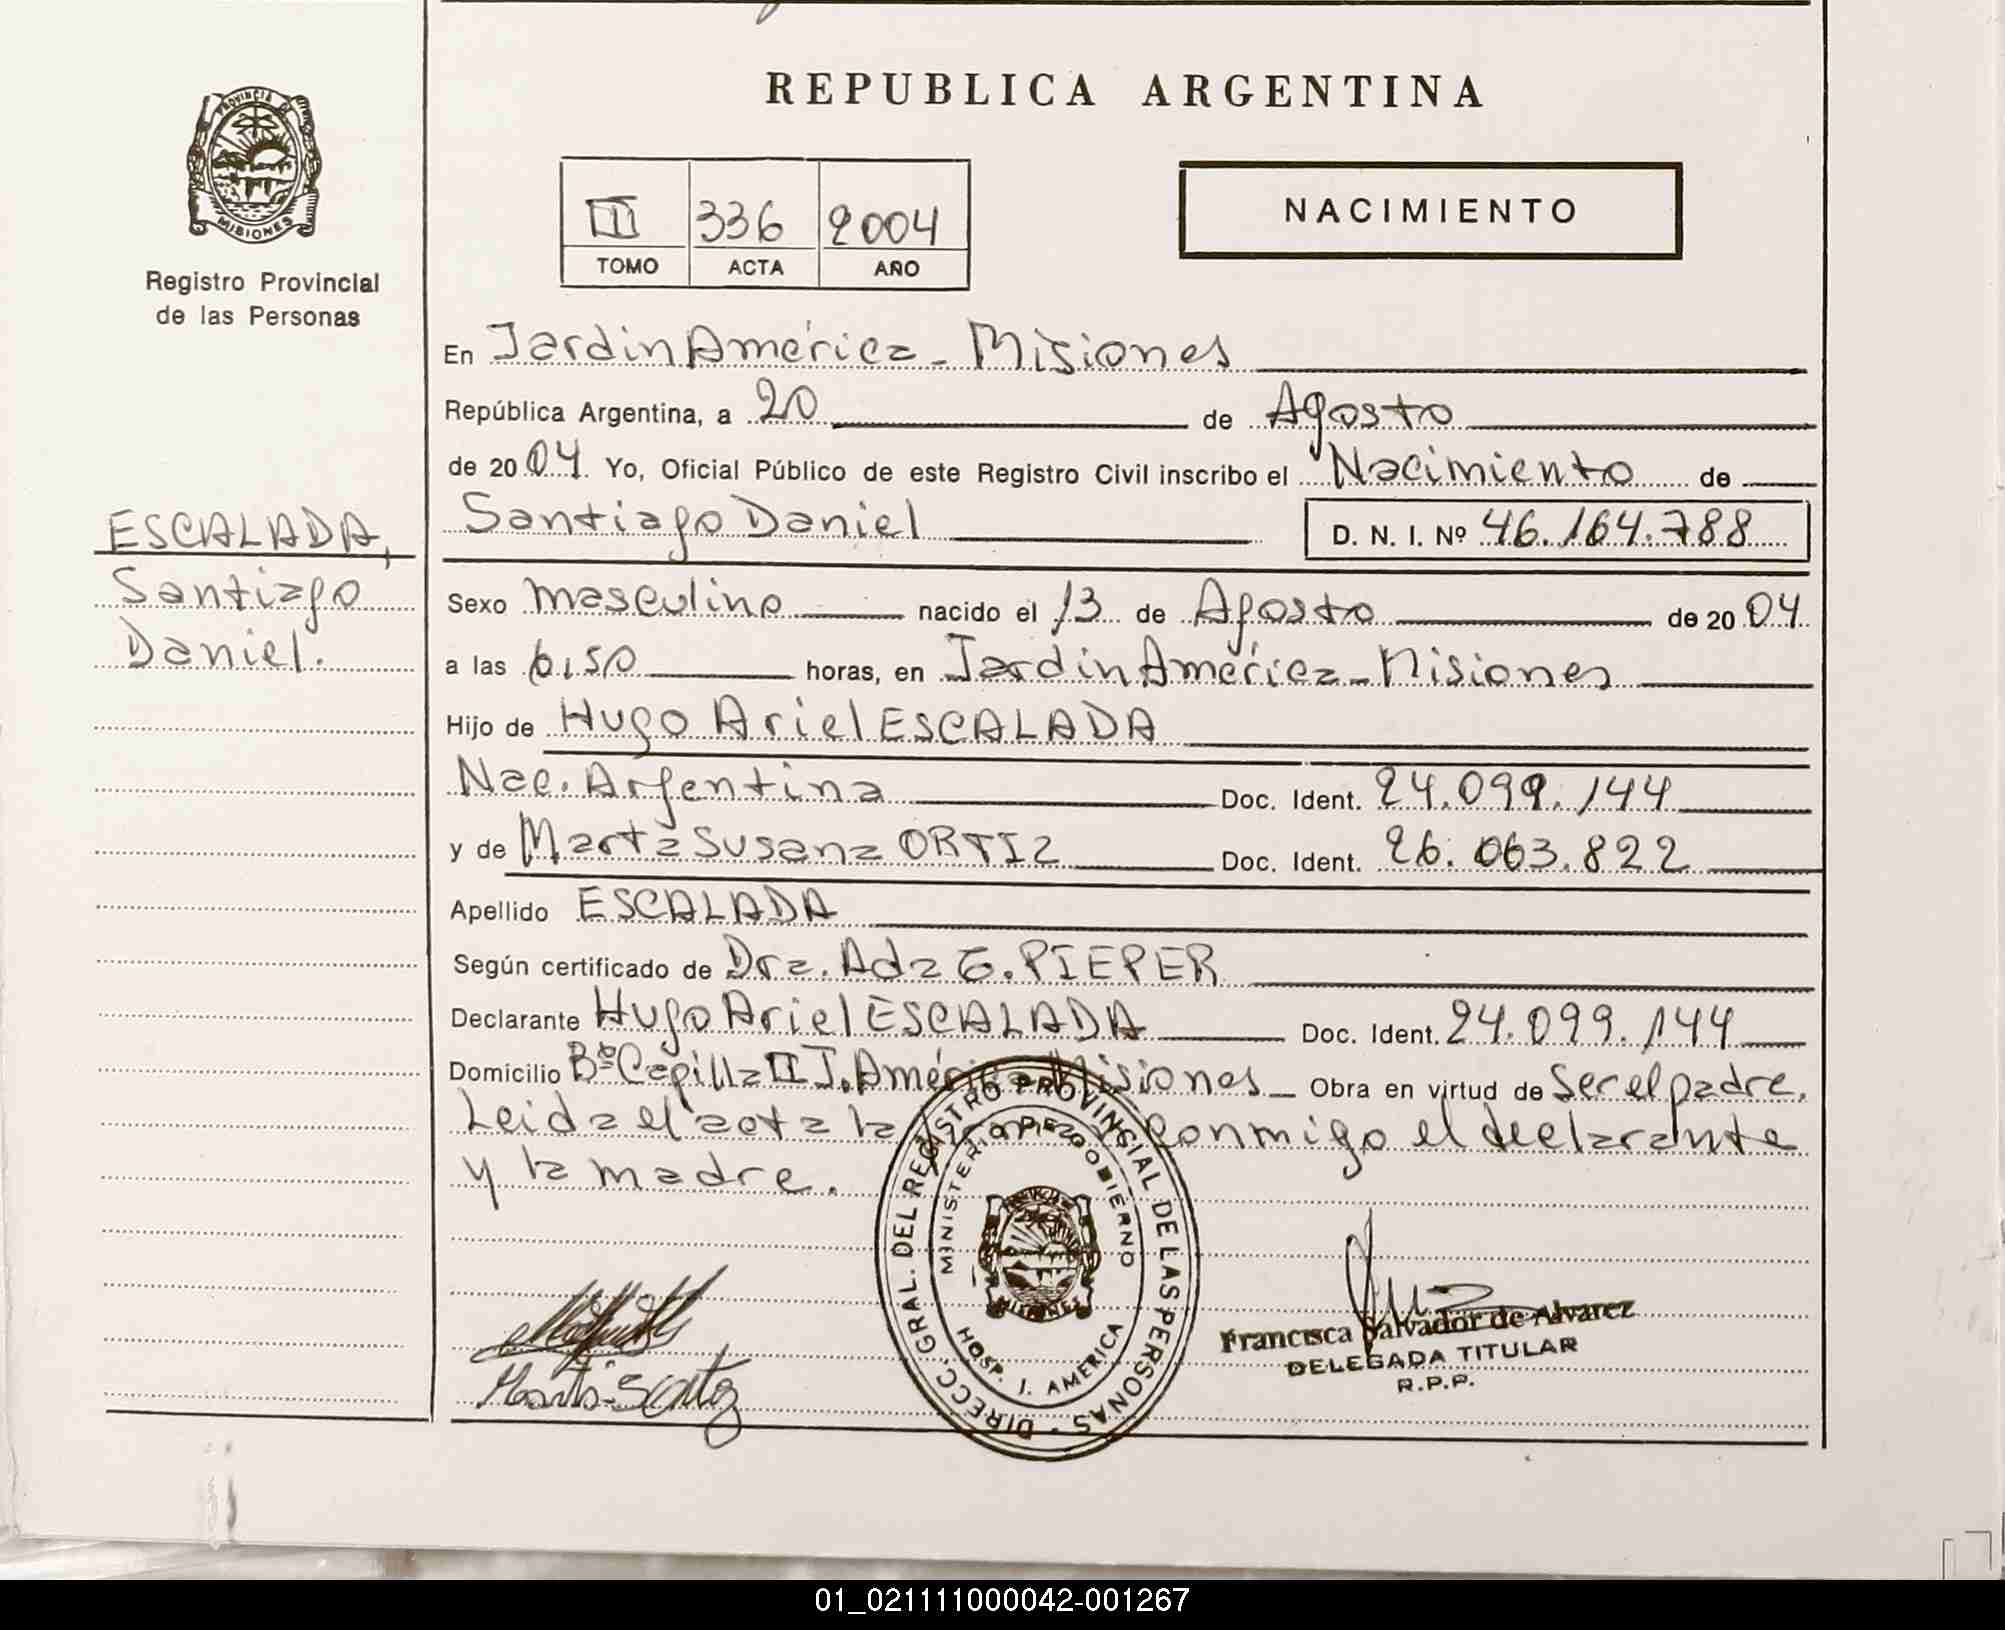 REPUBLICA ARGENTINA
PROVINCIA DE
MISIONES
Registro Provincial
de las Personas
II 336 2004
TOMO ACTA AÑO
NACIMIENTO
En Jardin América - Misiones
República Argentina, a 20 de Agosto
de 2004. Yo, Oficial Público de este Registro Civil inscribo el Nacimiento de
Santiago Daniel D. N. I. Nº 46.164.788
ESCALADA,
Santiago
Daniel.
Sexo masculino nacido el 13 de Agosto de 2004.
a las 6,50 horas, en Jardin América - Misiones
Hijo de Hugo Ariel ESCALADA
Nac. Argentina Doc. Ident. 24.099.144
y de Marta Susana ORTIZ Doc. Ident. 26.063.822
Apellido ESCALADA
Según certificado de Dra. Ada E. PIEPER
Declarante Hugo Ariel ESCALADA Doc. Ident. 24.099.144
Domicilio Bº Capilla II J. América Misiones Obra en virtud de Ser el padre.
Leida el acta la conmigo el declarante
y la madre.
DIRECC. GRAL. DEL REGISTRO PROVINCIAL DE LAS PERSONAS
MINISTERIO DE GOBIERNO
MISIONES
HOSP. J. AMERICA
Francisca Salvador de Alvarez
DELEGADA TITULAR
R.P.P.
01_021111000042-001267